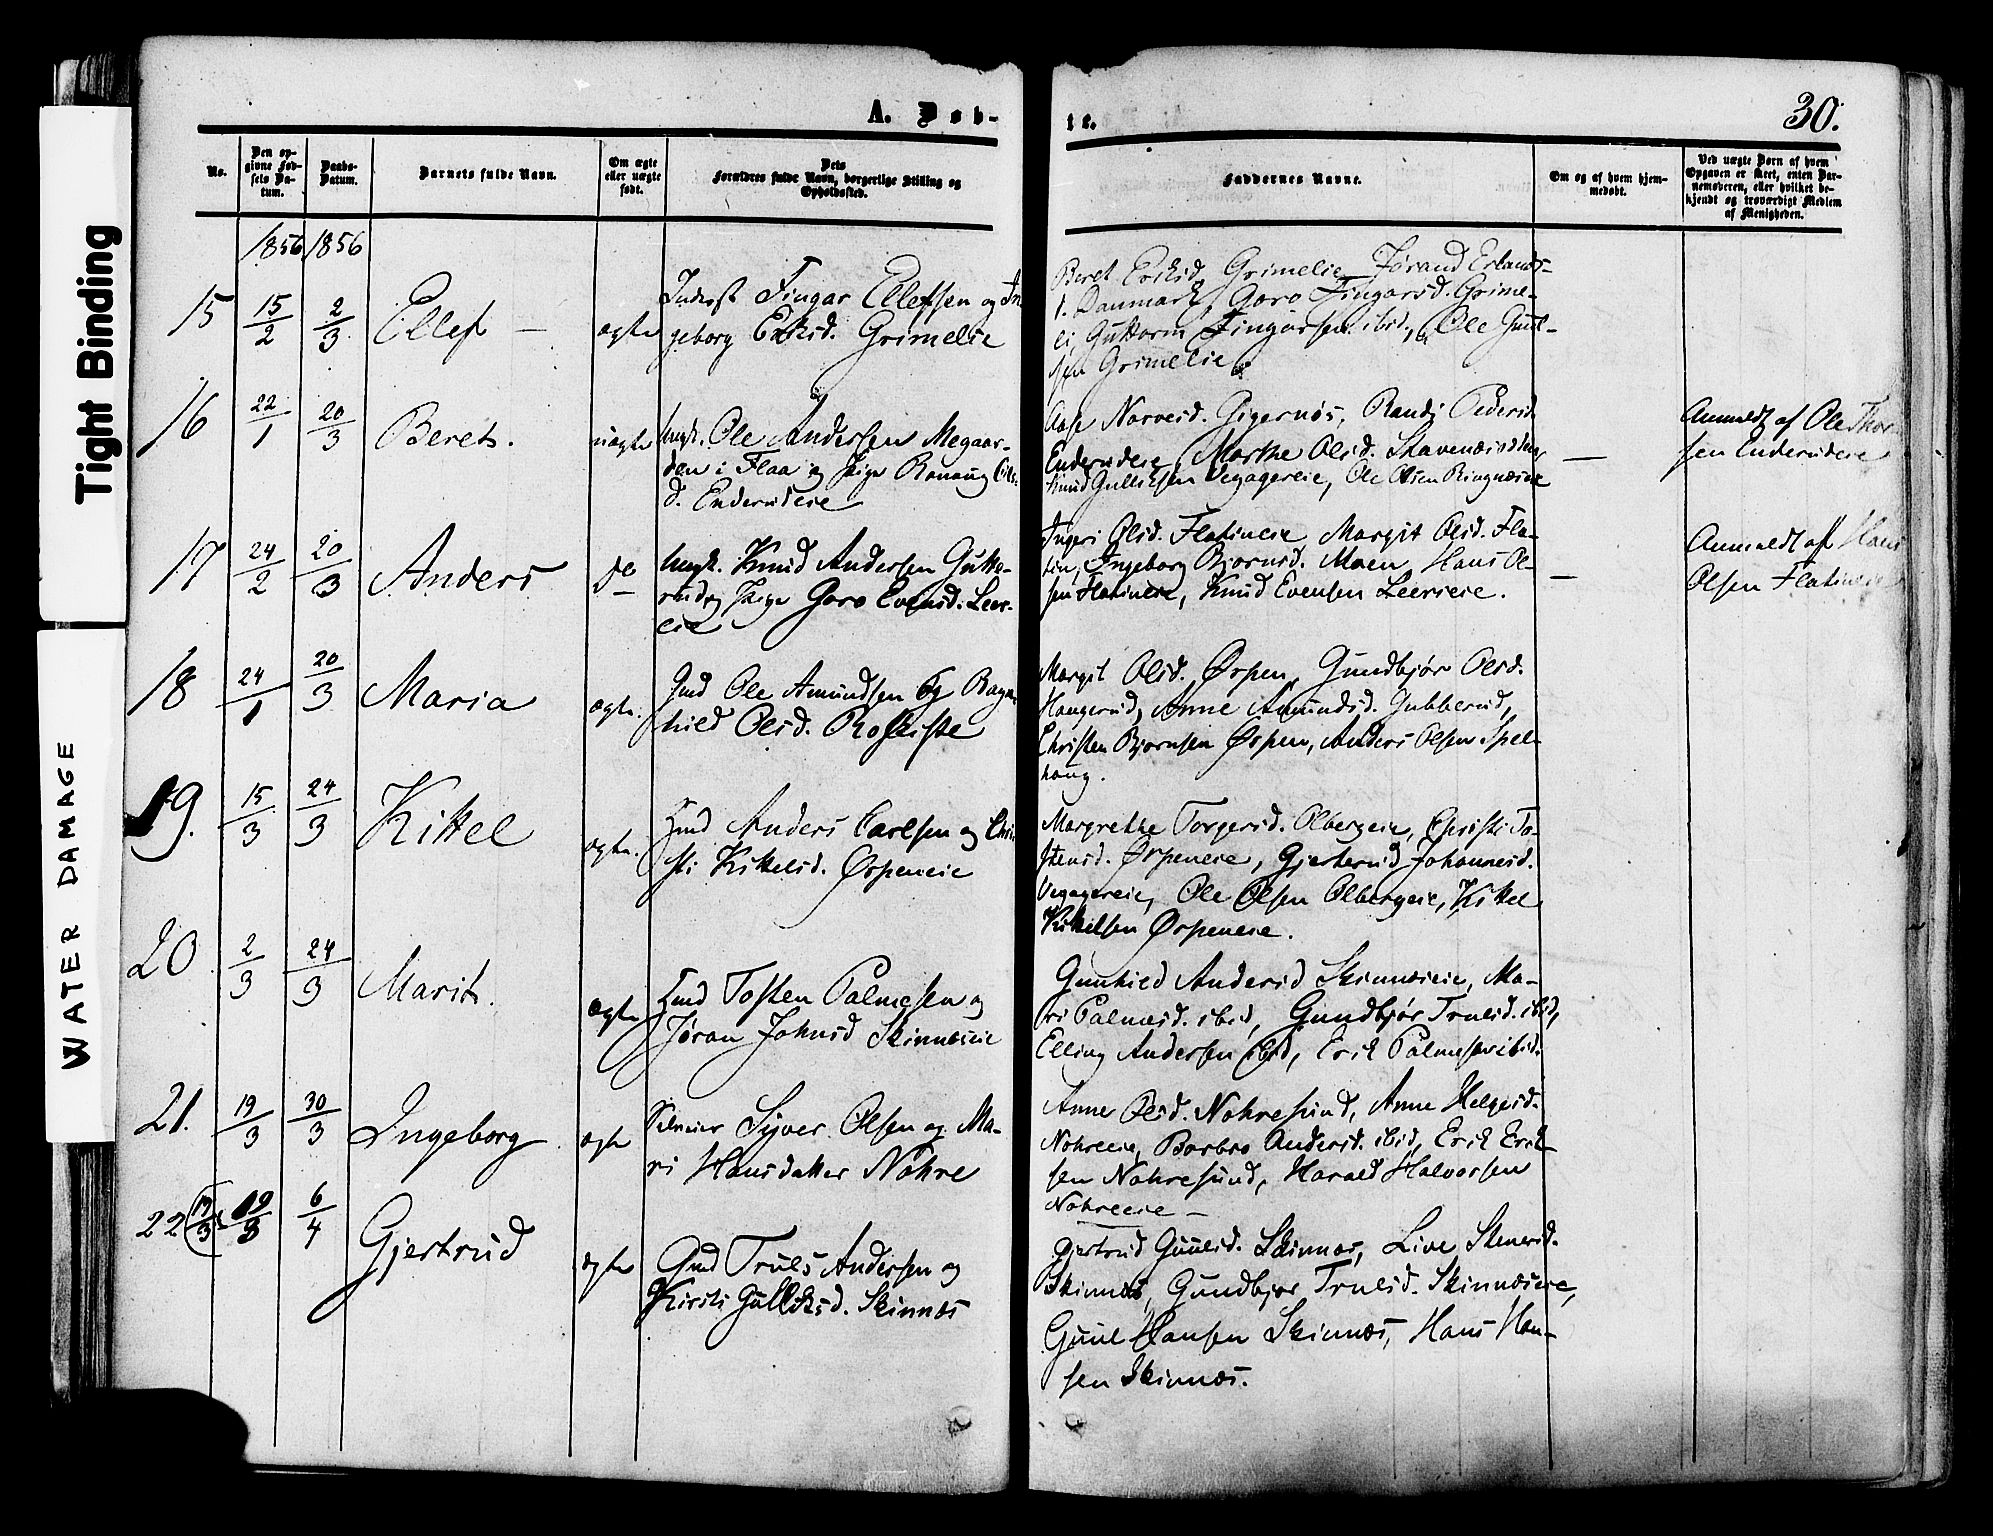 Tight Binding
WATER DAMAGE
A. Døb-
te.
30.
No.
Den op-
givne Fød-
sels Da-
tum.
Daabs-
Datum.
Barnets fulde Navn.
Om ægte
eller uægte
født.
Dets
Forældres fulde Navn, borgerlige Stilling og
Opholdssted.
Faddernes Navne.
Om og af hvem hjem-
medøbt.
Ved uægte Børn af hvem
Opgaven er skeet, enten Bar-
nemoderen, eller hvilket be-
kjendt og troværdigt Medlem
af Menigheden.
1856 1856
15 15/2 2/3 Ellef — ægte
Inderst Fingar Ellefsen og In
geborg Eriksd. Grimelie
Beret Eriksd. Grimelie, Jørand Erlands-
d. Danmark, Goro Fingarsd. Grime-
li, Guttorm Fingarsen ibid., Ole Guul-
sen Grimelie
16 22/1 20/3 Beret. uægte
Ungk. Ole Andersen Megaar-
den i Flaa og Pige Ronnug Ols-
d. Enderudeie
Aase Narvesd. Gigernøs, Randi Pedersd.
Enderudeie, Marthe Olsd.
Knud Gulliksen Vegagereie, Ole Olsen Ringnæseie
—
Anmeldt af Ole Thor
sen Enderudeie
17 24/2 20/3 Anders do
Ungk. Knud Andersen Gutto-
rud og Pige Goro Evensd. Leer-
eie
Ingeri Olsd. Flatineie, Margit Olsd. Fla-
tin, Ingeborg Bjørnsd. Moen, Hans Ol-
sen Flatineie, Knud Evensen Leereie.
—
Anmeldt af Hans
Olsen Flatineie
18 24/1 20/3 Maria ægte.
Gmd Ole Amundsen og Ragn
hild Olsd. Rolliste
Margit Olsd. Ørpen, Gundbjør Olsd.
Haugerud, Anne Amundsd. Gubberud,
Christen Bjørnsen Ørpen, Anders Olsen Spel-
haug.
19. 15/3 24/3 Kittel ægte.
Hmd Anders Carlsen og Chri
sti Kittelsd. Ørpeneie
Margrethe Torgersd. Olbergeie, Christi To-
stensd. Ørpeneie, Gjertrud Johannesd.
Vegagereie, Ole Olsen Olbergeie, Kittel
Kittelsen Ørpeneie.
20 2/3 24/3 Marit. ægte
Hmd Tosten Palmesen og
Jøran Johnsd Skinnæseie
Gunhild Andersd Skinnæseie, Ma-
ri Palmesd. ibid, Gundbjør Trulsd. ibid,
Elling Andersen ibid, Erik Palmesen ibid.
21. 19/3 30/3 Ingeborg ægte
Selveier Syver Olsen og Ma-
ri Hansdatter Nohre
Anne Olsd. Nohresund, Anne Helgesd.
Nohreeie, Barbro Andersd. ibid, Erik Erik-
sen Nohresund, Harald Halvorsen
Nohreeie —
22 (19/3) 19/3 6/4 Gjertrud ægte
Gmd Truls Andersen og
Kirsti Gulliksd. Skinnæs
Gjertrud Guulsd. Skinnæs, Live Stenersd.
Skinnæs, Gundbjør Trulsd. Skinnæseie,
Guul Hansen Skinnæs, Hans Han-
sen Skinnæs.